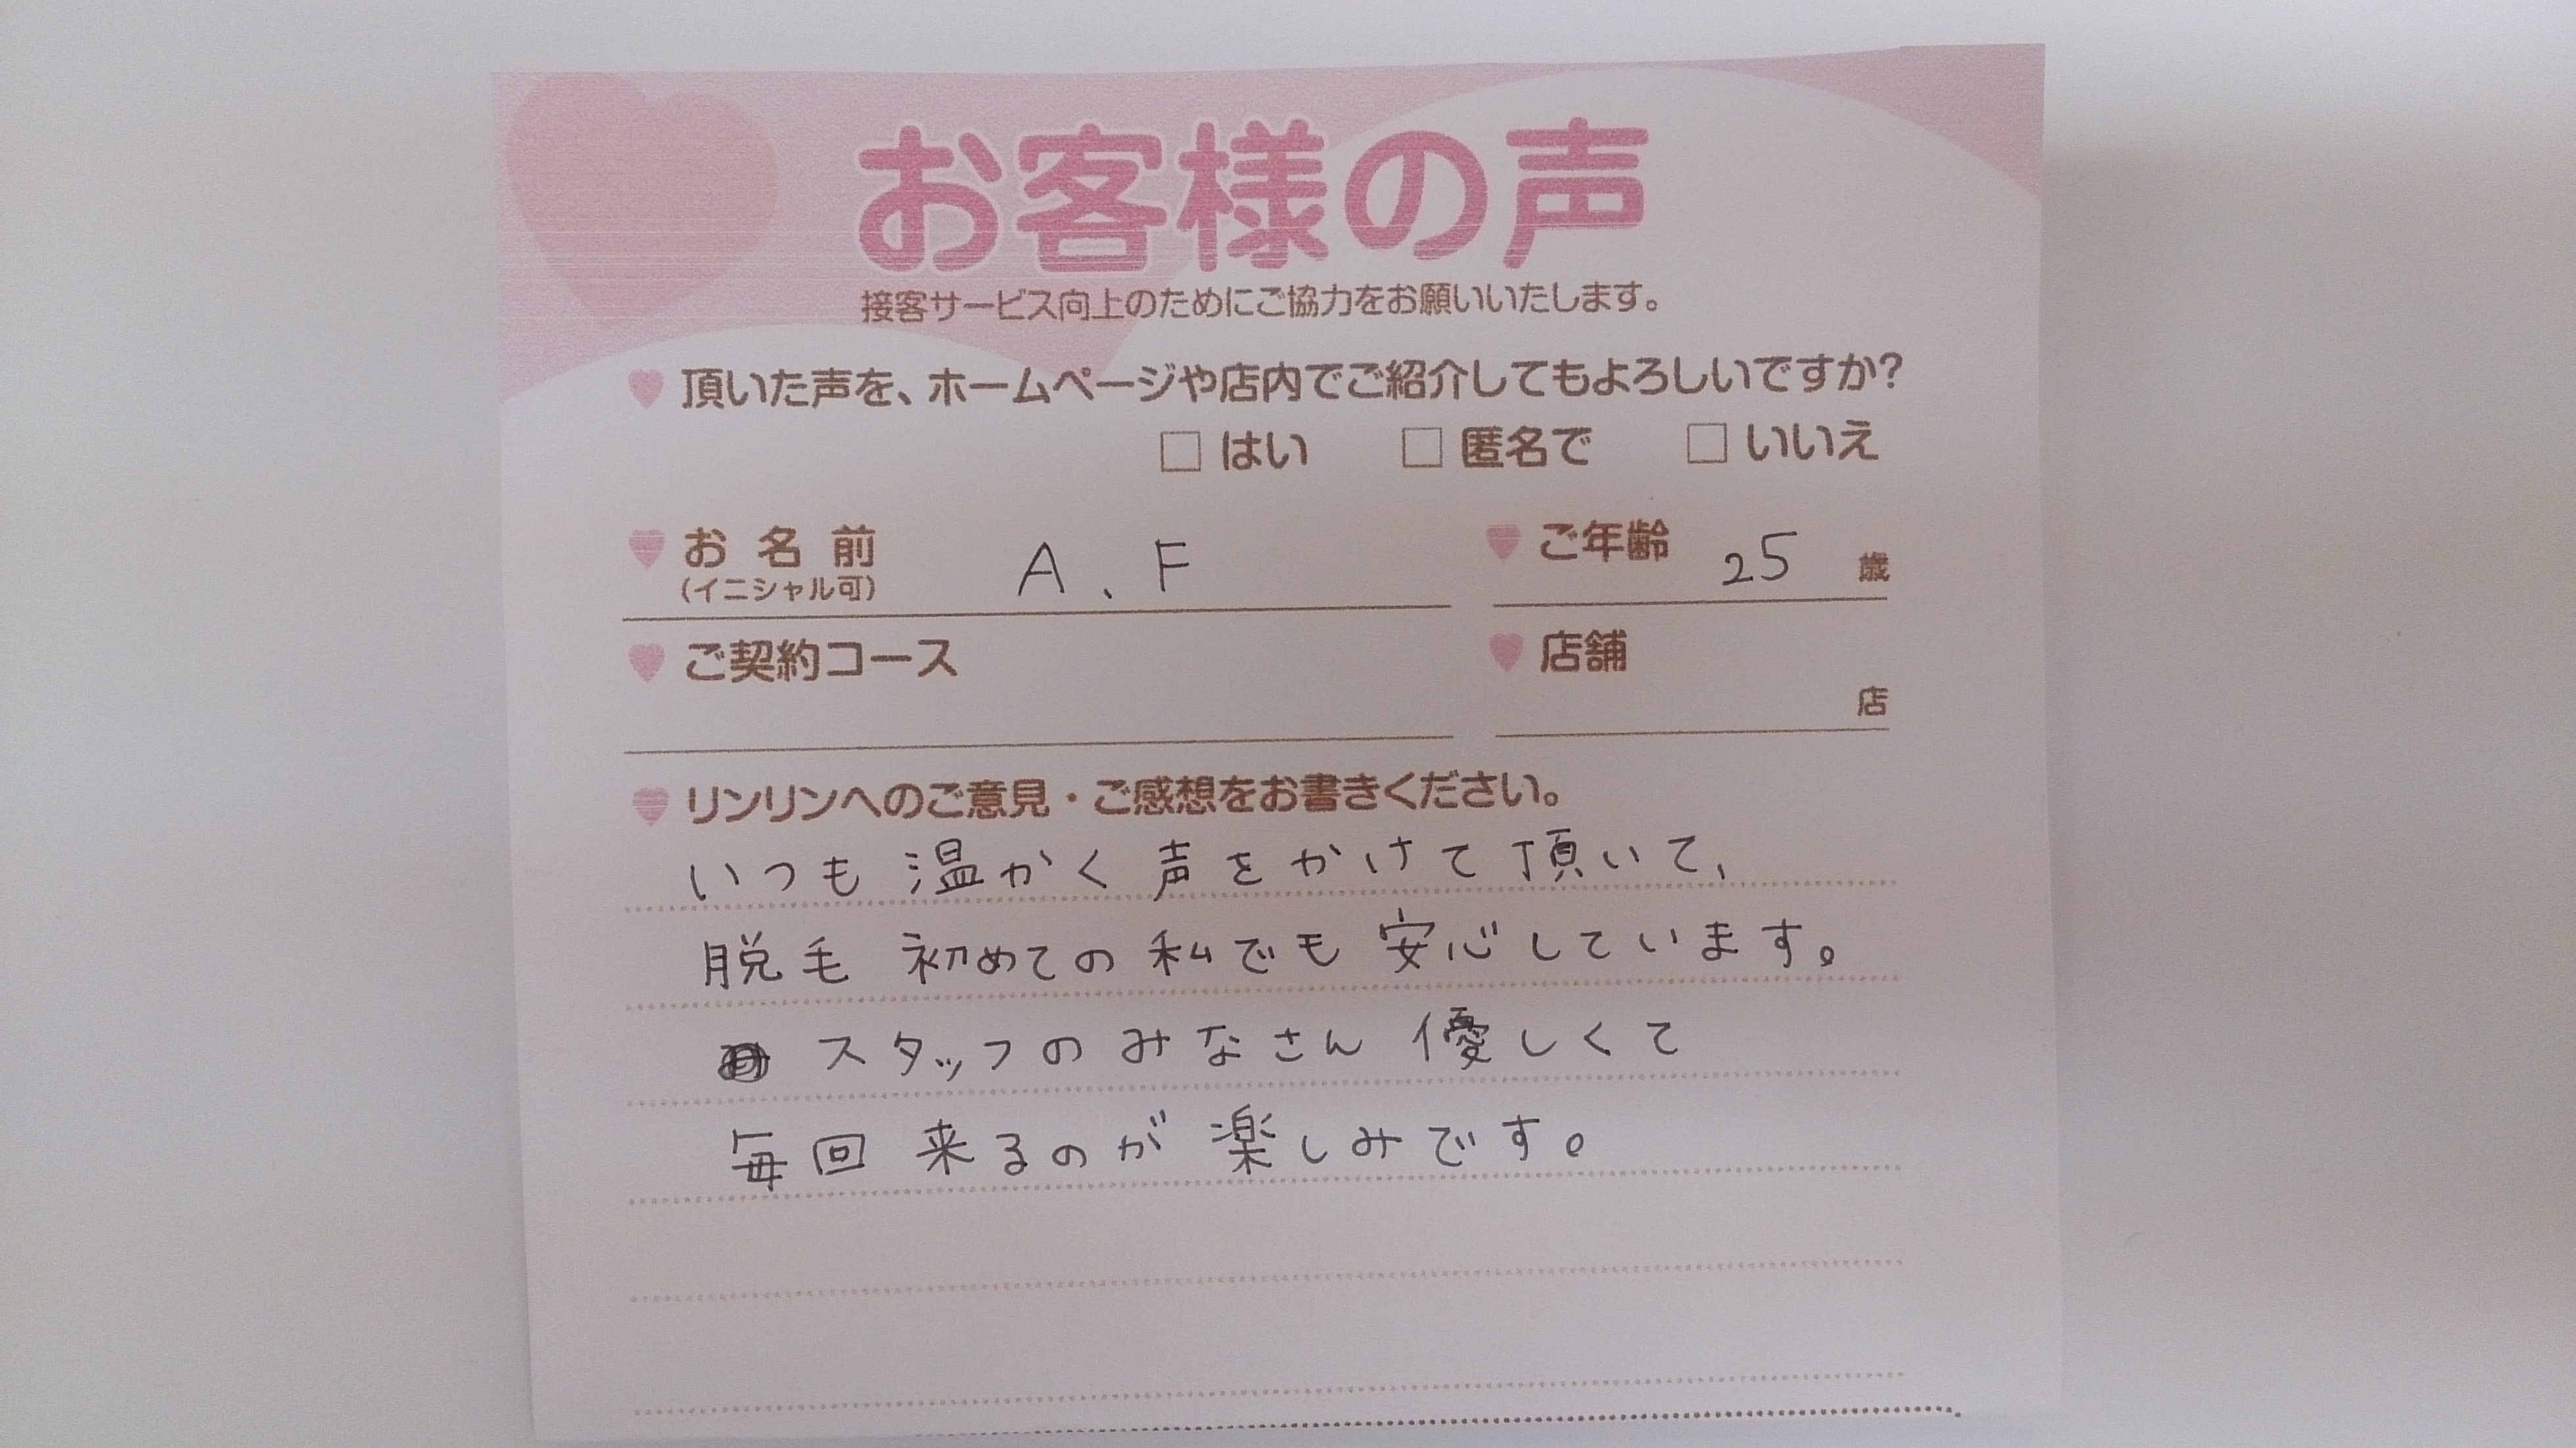 お客様の声
接客サービス向上のためにご協力をお願いいたします。
頂いた声を、ホームページや店内でご紹介してもよろしいですか?
□ はい □ 匿名で □ いいえ
お名前 A.F ご年齢 25 歳
(イニシャル可)
ご契約コース 店舗
店
リンリンへのご意見・ご感想をお書きください。
いつも温かく声をかけて頂いて、
脱毛初めての私でも安心しています。
スタッフのみなさん優しくて
毎回来るのが楽しみです。